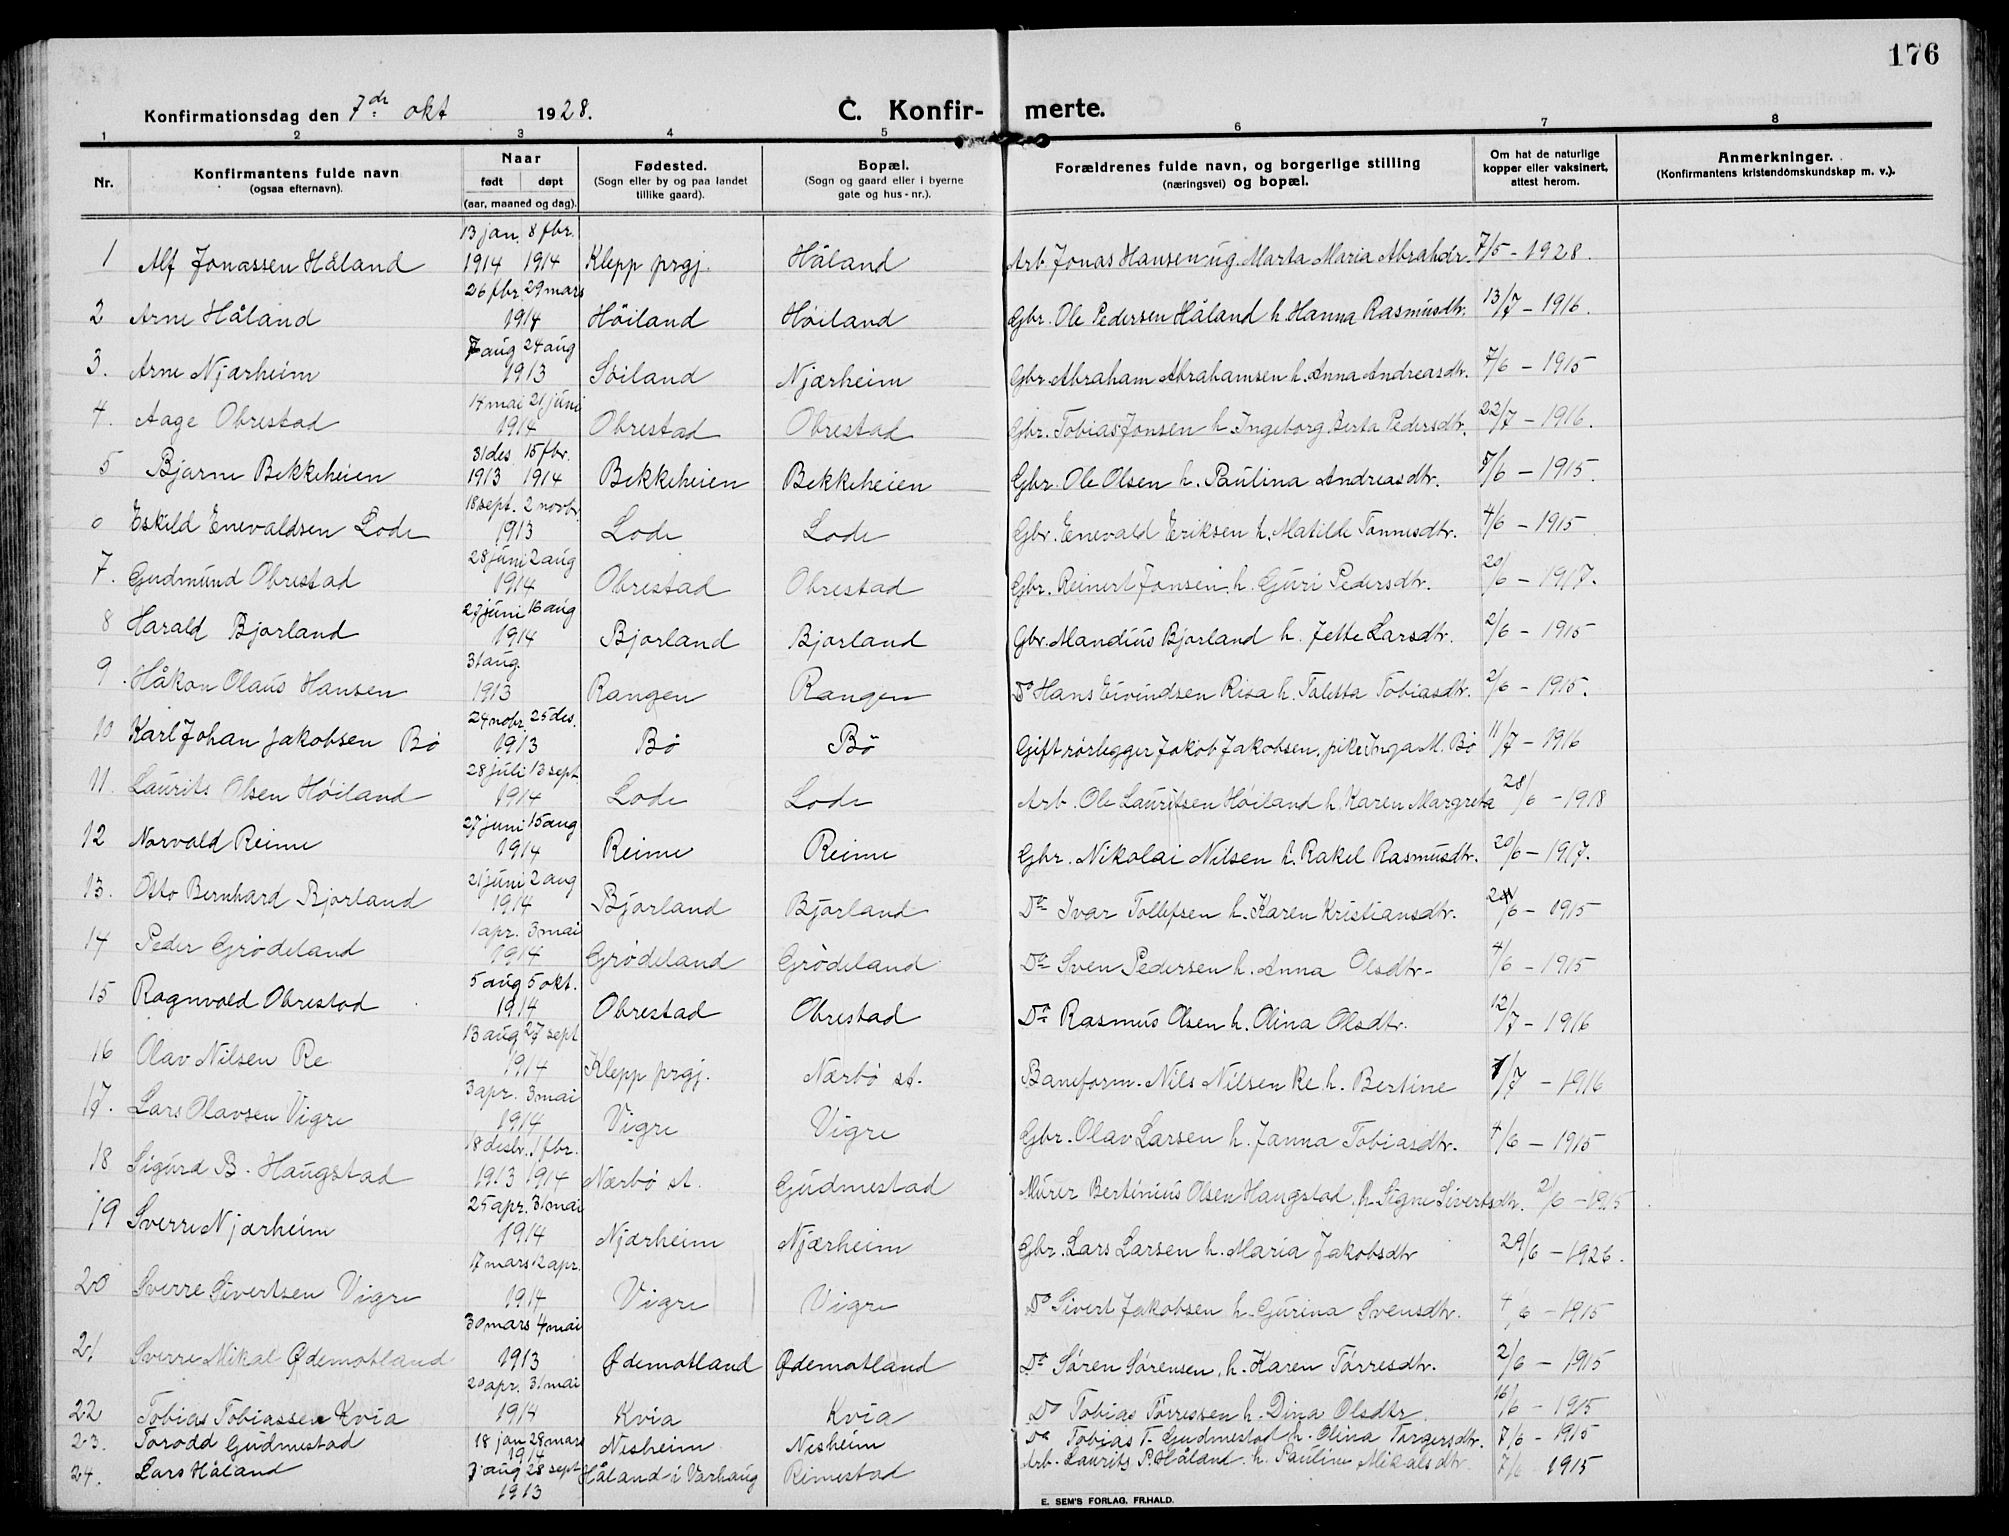 176
Konfirmationsdag den 7de okt 1928. C. Konfir- merte.
1 2 3 4 5 6 7 8
Nr. Konfirmantens fulde navn (ogsaa efternavn). Naar født døpt (aar, maaned og dag). Fødested. (Sogn eller by og paa landet tillike gaard). Bopæl. (Sogn og gaard eller i byerne gate og hus-nr.). Forældrenes fulde navn, og borgerlige stilling (næringsvei) og bopæl. Om hat de naturlige kopper eller vaksinert, attest herom. Anmerkninger. (Konfirmantens kristendomskundskap m. v.).
1 Alf Jonassen Håland 13 jan. 1914 8 fbr. 1914 Klepp prgj. Håland Arb. Jonas Hansen ug. Marta Maria Abrahdr. 7/5 - 1928.
2 Arne Håland 26 fbr. 29 mars 1914 Höiland Høiland Gbr. Ole Pedersen Håland h. Hanna Rasmusdtr. 13/7 - 1916.
3. Arne Njærheim 7 aug 24 aug 1913 Søiland Njærheim Gbr. Abraham Abrahamsen h. Anna Andreasdtr. 7/6 - 1915
4. Aage Obrestad 14 mai 21 juni 1914 Obrestad Obrestad Gbr. Tobias Jonsen h. Ingeborg Berta Pedersdtr. 22/7 - 1916.
5 Bjarne Bekkeheien 31 des 1913 15 fbr. 1914 Bekkeheien Bekkeheien Gbr. Ole Olsen h. Paulina Andreasdtr. /6 - 1915.
Eskild Enevaldsen Lode 18 sept. 2 novbr. 1913 Lode Lode Gbr. Enevald Eriksen h. Matilde Tønnesdtr. 4/6 - 1915
7. Gudmund Obrestad 28 juni 2 aug 1914 Obrestad Obrestad Gbr. Reinert Jonsen h. Guri Pedersdtr. 20/6 - 1917.
8 Harald Bjorland juni 16 aug 1914 Bjorland Bjorland Gbr. Mandius Bjorland h. Jette Larsdtr. 2/6 - 1915
9. Håkon Olaus Hansen 31 aug. 1913 Rangen Rangen Do Hans Eivindsen Risa h. Taletta Tobiasdtr. 2/6 - 1915.
10 Karl Johan Jakobsen Bø 24 nobr. 25 des. 1913 Bø Bø Gift rørlegger Jakob Jakobsen, pike Inga M. Bø 11/7 - 1916
11. Laurits Olsen Høiland 28 juli 13 sept 1914 Lode Lode Arb. Ole Lauritsen Høiland h. Karen Margreta 28/6 - 1918
12 Norvald Reime 27 juni 15 aug 1914 Reime Reime Gbr. Nikolai Nilsen h. Rakel Rasmusdtr. 20/6 - 1917.
13. Otto Bernhard Bjorland 21 juni 2 aug 1914 Bjorland Bjorland Do Ivar Tollefsen h. Karen Kristiansdtr. /6 - 1915
14 Peder Grødeland 1 apr. 3 mai 1914 Grødeland Grødeland Do Sven Pedersen h. Anna Olsdtr - 4/6 - 1915
15 Ragnvald Obrestad 5 aug 5 okt. 1914 Obrestad Obrestad Do Rasmus Olsen h. Olina Olsdtr. 12/7 - 1916
16 Olav Nilsen Re 13 aug 27 sept 1914 Klepp prgj. Nærbø st. Baneform. Nils Nilsen Re h. Bertine /7 - 1916
17. Lars Olavsen Vigre 3 apr. 3 mai 1914 Vigre Vigre Gbr. Olav Larsen h. Janna Tobiasdtr. 4/6 - 1915
18 Sigurd B. Haugstad 18 desbr. 1913 1 fbr. 1914 Nærbø st. Gudmestad Murer Bertinius Olsen Haugstad. h. Signe Sivertsdtr. 2/6 - 1915
19 Sverre Njærheim 25 apr. 31 mai 1914 Njærheim Njærheim Gbr. Lars Larsen h. Maria Jakobsdtr 29/6 - 1926.
20 Sverre Sivertsen Vigre 17 mars 12 apr. 1914 Vigre Vigre Do Sivert Jakobsen h. Gurina Svensdtr. 4/6 - 1915
21 Sverre Mikal Ødemotland 30 mars 4 mai 1913 Ødemotland Ødemotland Do Søren Sørensen, h. Karen Tørresdtr. 2/6 - 1915
22 Tobias Tobiassen Kvia 20 apr. 31 mai 1914 Kvia Kvia Do Tobias Tørressen h. Dina Olsdtr. 16/6 - 1915
23. Torodd Gudmestad 18 jan 29 mars 1914 Nesheim Nesheim Do Tobias T. Gudmestad h. Olina Torgersdtr. 7/6 - 1915
24. Lars Håland 7 aug 28 sept 1913 Håland i Varhaug Rimestad Arb. Laurits P. Håland h. Pauline Mikalsdtr. 7/6 1915
E. SEM'S FORLAG, FR.HALD.